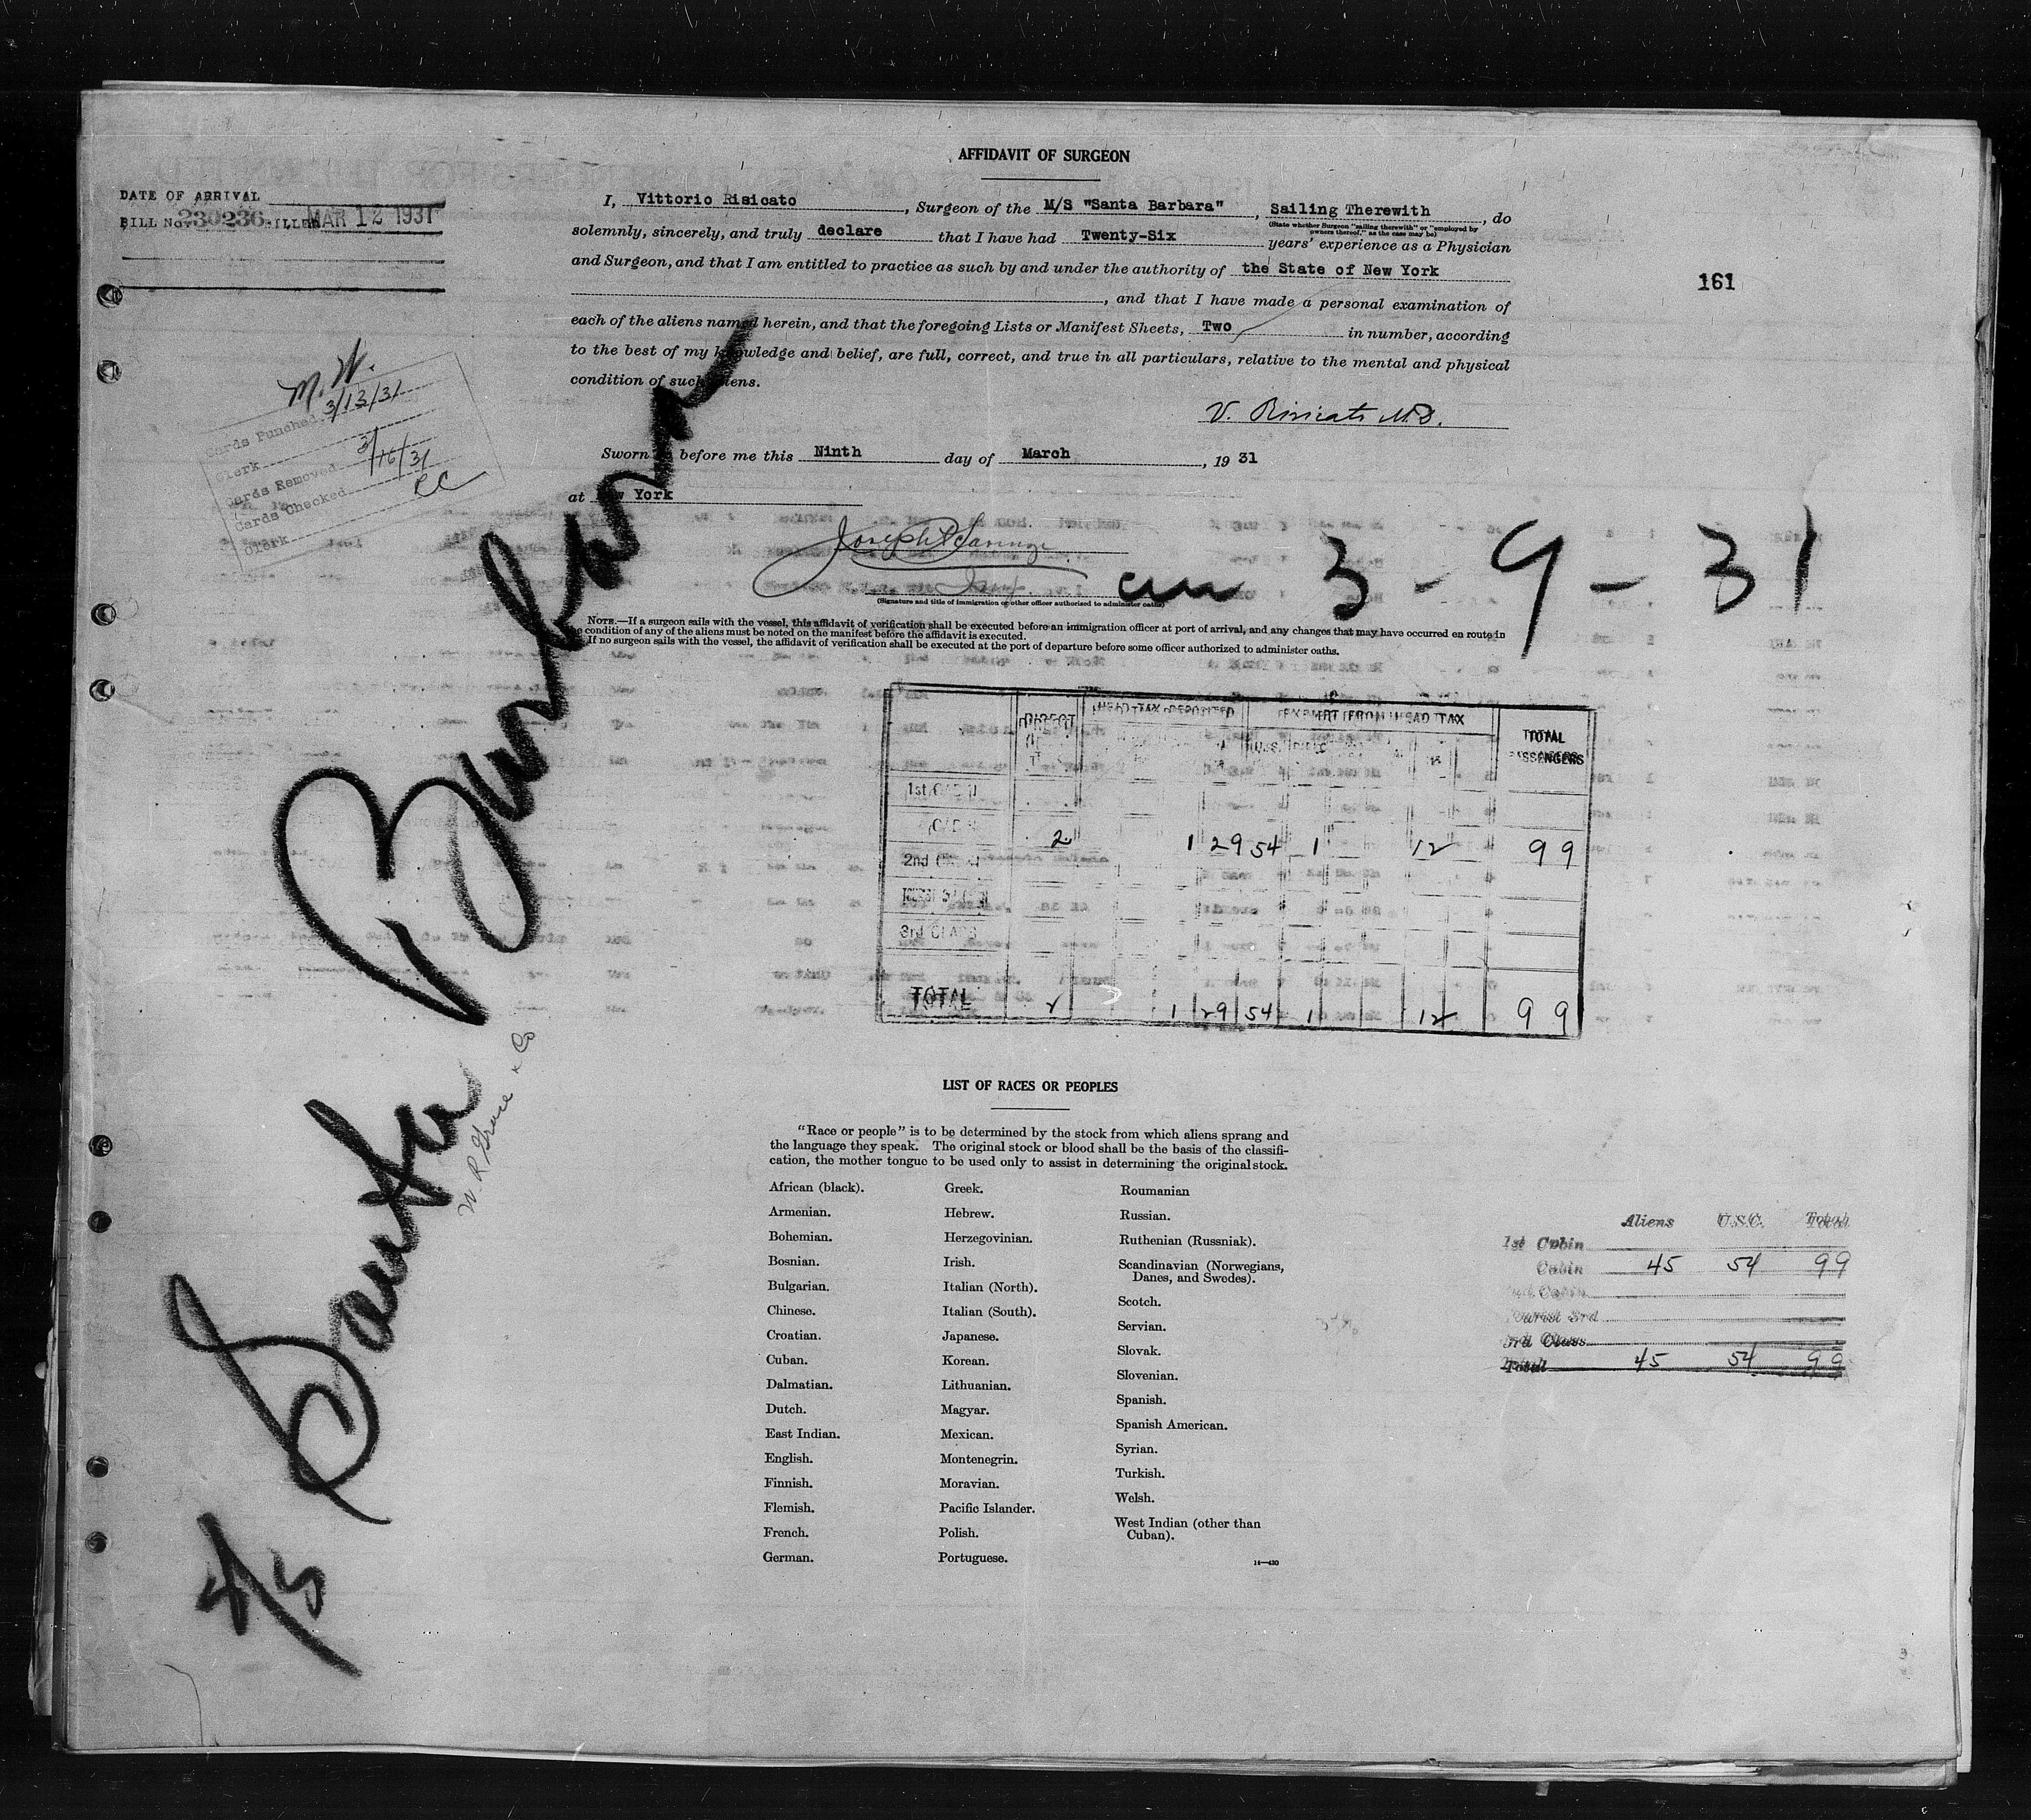 AFFIDAVIT OF SURGEON
DATE OF ARRIVAL
BILL No. 230236 BILLED MAR 12 1931
I, Vittorio Risicato, Surgeon of the M/S "Santa Barbara", Sailing Therewith, do
(State whether Surgeon "sailing therewith" or "employed by
owners thereof," as the case may be)
solemnly, sincerely, and truly declare that I have had Twenty-Six years' experience as a Physician
and Surgeon, and that I am entitled to practice as such by and under the authority of the State of New York
, and that I have made a personal examination of
each of the aliens named herein, and that the foregoing Lists or Manifest Sheets, Two in number, according
to the best of my knowledge and belief, are full, correct, and true in all particulars, relative to the mental and physical
condition of such aliens.
161
V. Risicato M.D.
Sworn to before me this Ninth day of March, 19 31
at New York
M. W.
Cards Punched 3/13/31
Clerk
Cards Removed 3/16/31
Cards Checked
Clerk CC
Insp.
3 - 9 - 31
(Signature and title of immigration or other officer authorized to administer oaths)
NOTE.—If a surgeon sails with the vessel, this affidavit of verification shall be executed before an immigration officer at port of arrival, and any changes that may have occurred en route in
the condition of any of the aliens must be noted on the manifest before the affidavit is executed.
If no surgeon sails with the vessel, the affidavit of verification shall be executed at the port of departure before some officer authorized to administer oaths.
Santa Barbara
W. R. Grace & Co
DIRECT HEAD TAX DEPOSITED EXEMPT FROM HEAD TAX TOTAL PASSENGERS
1st CABIN
CABIN 2 1 29 54 1 12 99
2nd CABIN
TOURIST 3rd
3rd CLASS
TOTAL 2 1 29 54 1 12 99
LIST OF RACES OR PEOPLES
"Race or people" is to be determined by the stock from which aliens sprang and
the language they speak. The original stock or blood shall be the basis of the classifi-
cation, the mother tongue to be used only to assist in determining the original stock.
African (black).
Armenian.
Bohemian.
Bosnian.
Bulgarian.
Chinese.
Croatian.
Cuban.
Dalmatian.
Dutch.
East Indian.
English.
Finnish.
Flemish.
French.
German.
Greek.
Hebrew.
Herzegovinian.
Irish.
Italian (North).
Italian (South).
Japanese.
Korean.
Lithuanian.
Magyar.
Mexican.
Montenegrin.
Moravian.
Pacific Islander.
Polish.
Portuguese.
Roumanian
Russian.
Ruthenian (Russniak).
Scandinavian (Norwegians,
Danes, and Swedes).
Scotch.
Servian.
Slovak.
Slovenian.
Spanish.
Spanish American.
Syrian.
Turkish.
Welsh.
West Indian (other than
Cuban).
14—430
Aliens U.S.C. Total
1st Cabin
Cabin 45 54 99
2nd Cabin
Tourist 3rd
3rd Class
Total 45 54 99